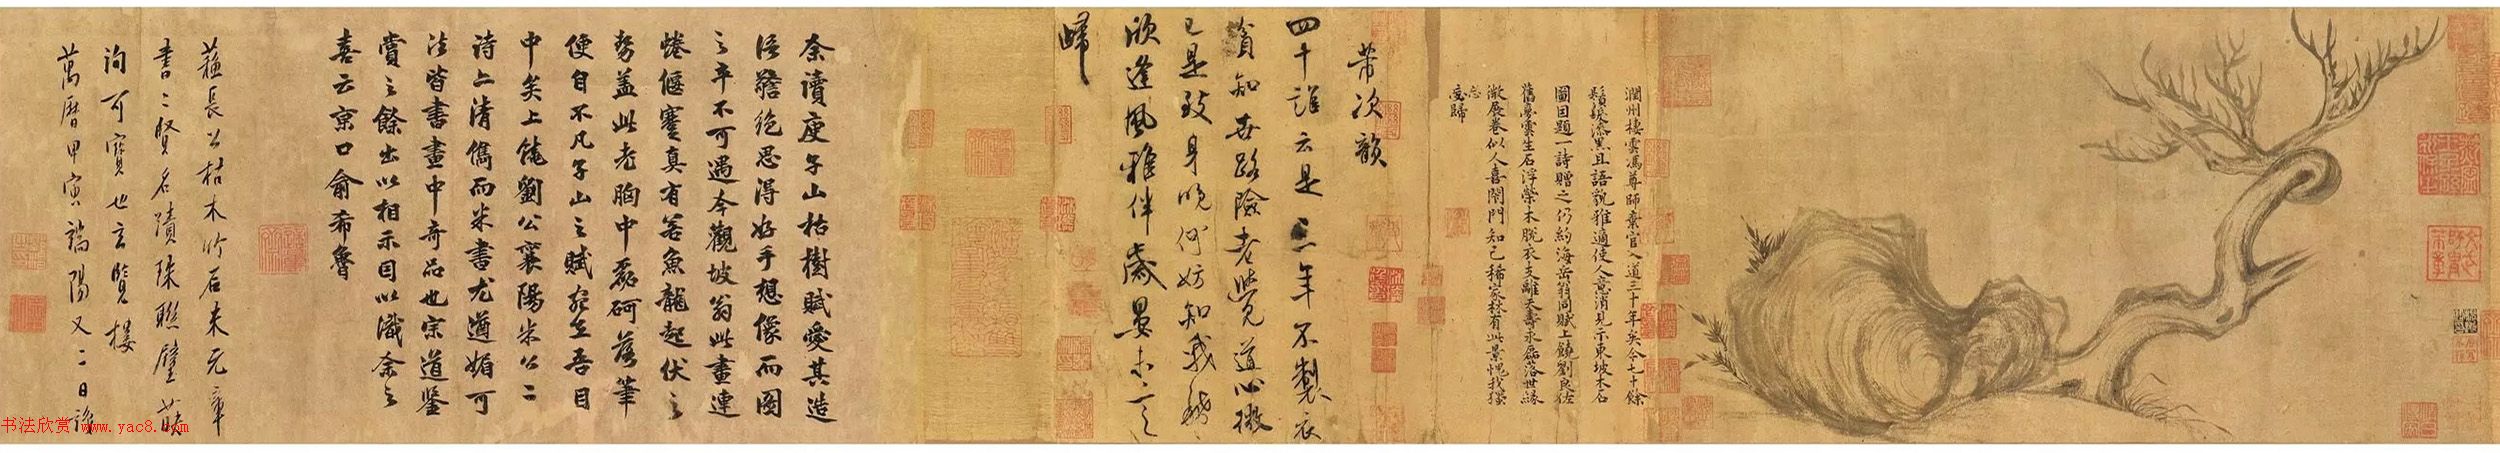 潤州棲雲馮尊師棄官入道三十年矣今七十餘
鬚髮漆黑且語貌雅適使人意消見示東坡木石
圖因題一詩贈之仍約海岳翁同賦上饒劉良佐
舊夢雲生石浮榮木脫衣支離天壽永磊落世緣
微展卷似人喜閉門知己稀家林有此景愧我獨
忘歸
芾次韻
四十誰云是三年不製衣
貧知世路險老覺道心微
已是致身晚何妨知我稀
欣逢風雅伴歲晏未言
歸
余讀庾子山枯樹賦愛其造
語警絕思得好手想像而圖
之卒不可遇今觀坡翁此畫連
蜷偃蹇真有若魚龍起伏之
勢盖此老胸中磊砢落筆
便自不凡子山之賦宛在吾目
中矣上饒劉公襄陽米公二
詩上清儁而米書尤遒媚可
法皆書畫中奇品也宗道鉴
賞之餘出以相示因以識余之
喜云京口俞希魯
蘇長公枯木竹石米元章
書二賢名蹟珠聯璧
詢可寶也玄覽樓
萬曆甲寅端陽又二日
书法欣赏 www.yac8.com